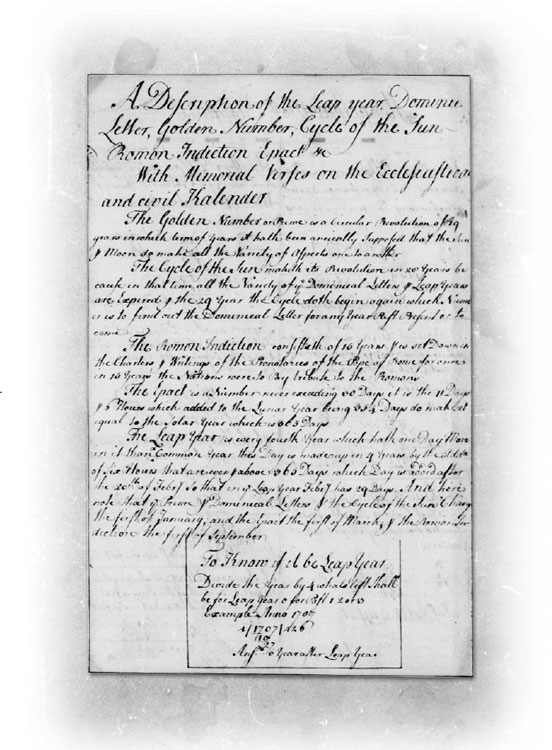 A Description of the Leap year, Dominic
Letter, Golden Number, Cycle of the Sun
Romon Indiction Epact &c
With Memorial Verses on the Ecclesiastical
and civil Kalender
The Golden Number or Prime is a Circular Revolution of 19
years in which term of years it hath been anciently Supposed that the Sun
& Moon do make all the Variety of Aspects one to another
The Cycle of the Sun maketh its Revolution in 28 Years be
cause in that time all the Variety of ye Domenical Letters & Leap Years
are Expired & the 29 Year the Cycle doth begin again which Num
er is to find out the Domenical Letter for any Year Past Present or to
come
The Romon Indiction consisteth of 15 Years & is set Down in
the Charters & Writings of the of the Pope of Rome for once
in 15 Years the Nations were to Pay tribute to the Romans
The Epact is a Number never exceeding 30 Days it is the 11 Days
& 6 Hours which added to the Lunar Year being 354 Days do make it
equal to the Solar Year which is 365 Days
The Leap Year is every fourth Year which hath one Day More
in it than Common Year this Day is made up in 4 Years by the
of Six Hours that are over & above 365 Days which Day is added after
the 28th of Febry So that in ye Leap Year Febry has 29 Days. And here
note that ye Prime & Domenical Letters & the Cycle of the Sun Chang
the first of January, and the Epact the first of March, & the Romon In
diction the first of September
To Know if it be Leap Year
Devide the Year by 4 whats left shall
be for Leap Year 0 for Past 1 2 or 3
Example Anno 1707
4/1707/426
Year after Leap Year